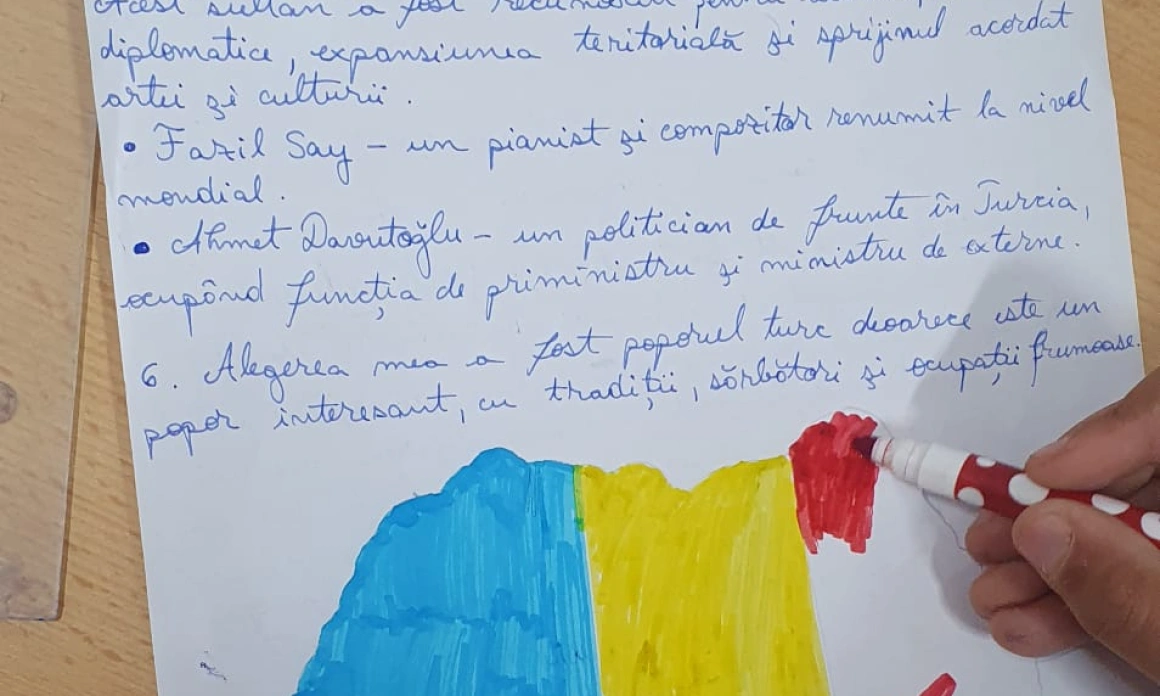 Acest sultan a fost recunoscut pentru
diplomatice, expansiunea teritorială și sprijinul acordat
artei și culturii.
• Fazil Say – un pianist și compozitor renumit la nivel
mondial.
• Ahmet Davutoğlu – un politician de frunte în Turcia,
ocupând funcția de priministru și ministru de externe.
6. Alegerea mea a fost poporul turc deoarece este un
popor interesant, cu tradiții, sărbători și ocupații frumoase.